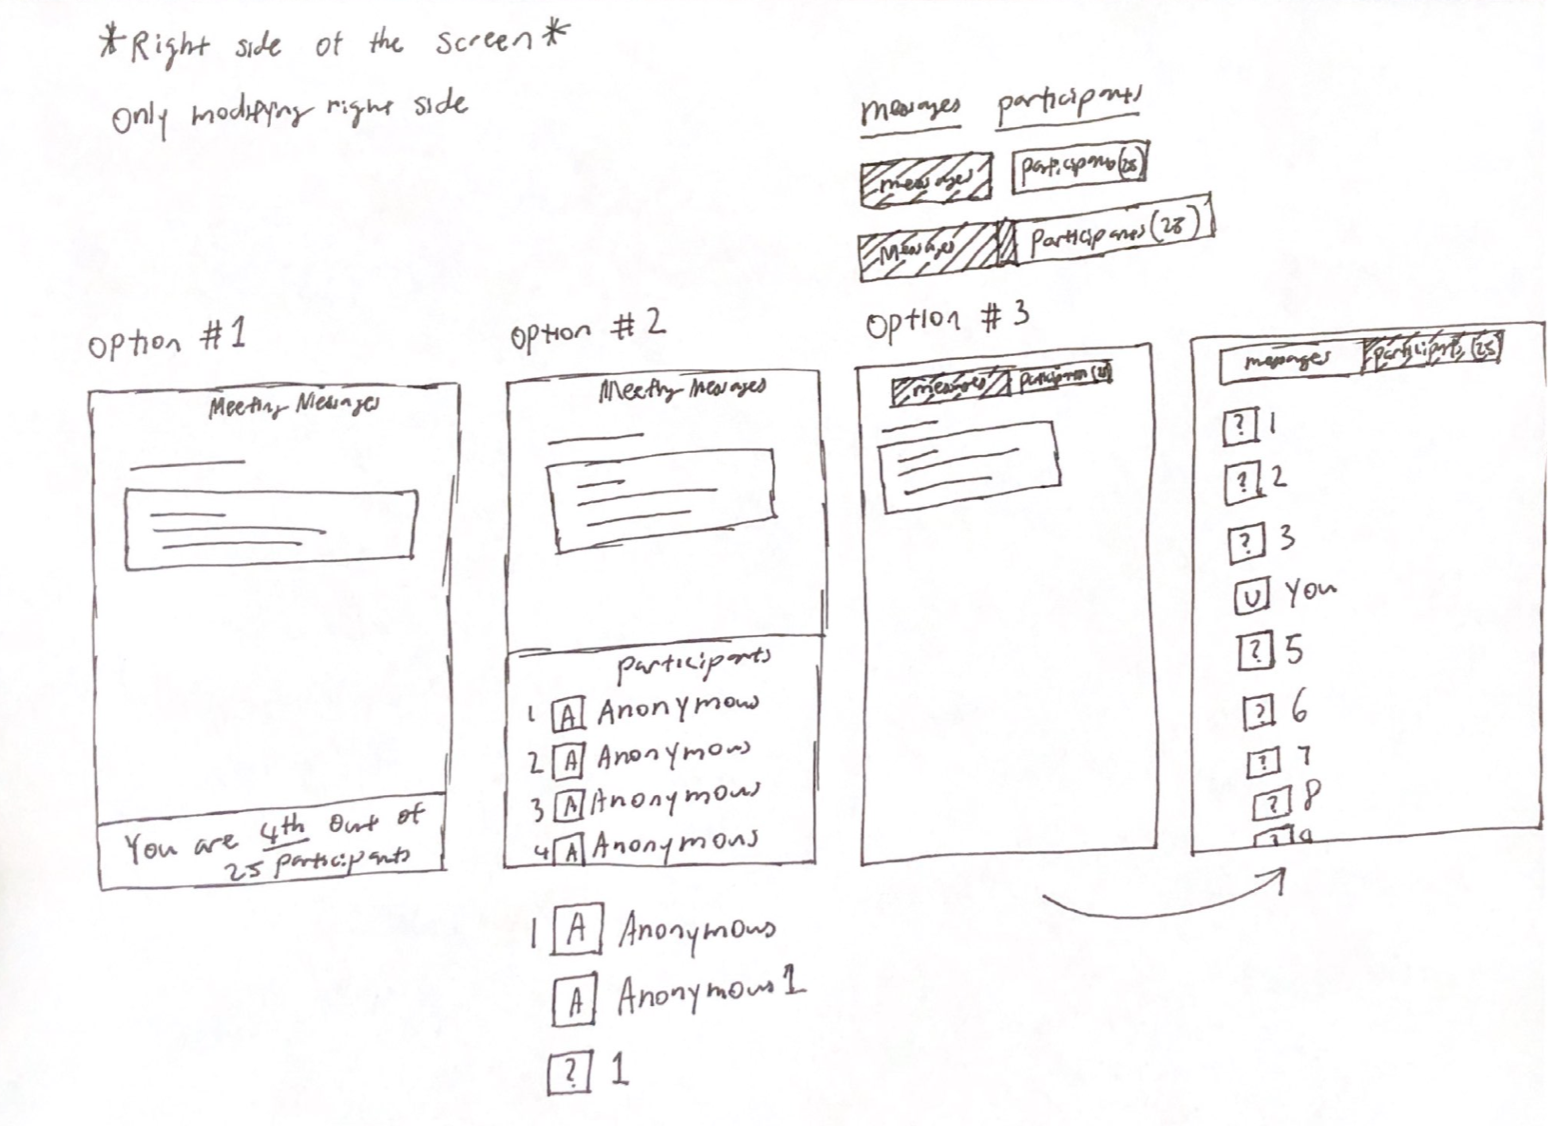 *Right side of the screen*
Only modifying right side
messages participants
messages participants(28)
Messages Participants(28)
Option #1
Meeting Messages
You are 4th out of
25 participants
Option #2
Meeting Messages
Participants
1 A Anonymous
2 A Anonymous
3 A Anonymous
4 A Anonymous
1 A Anonymous
A Anonymous1
? 1
Option #3
messages participants
messages participants (25)
? 1
? 2
? 3
U You
? 5
? 6
? 7
? 8
? 9